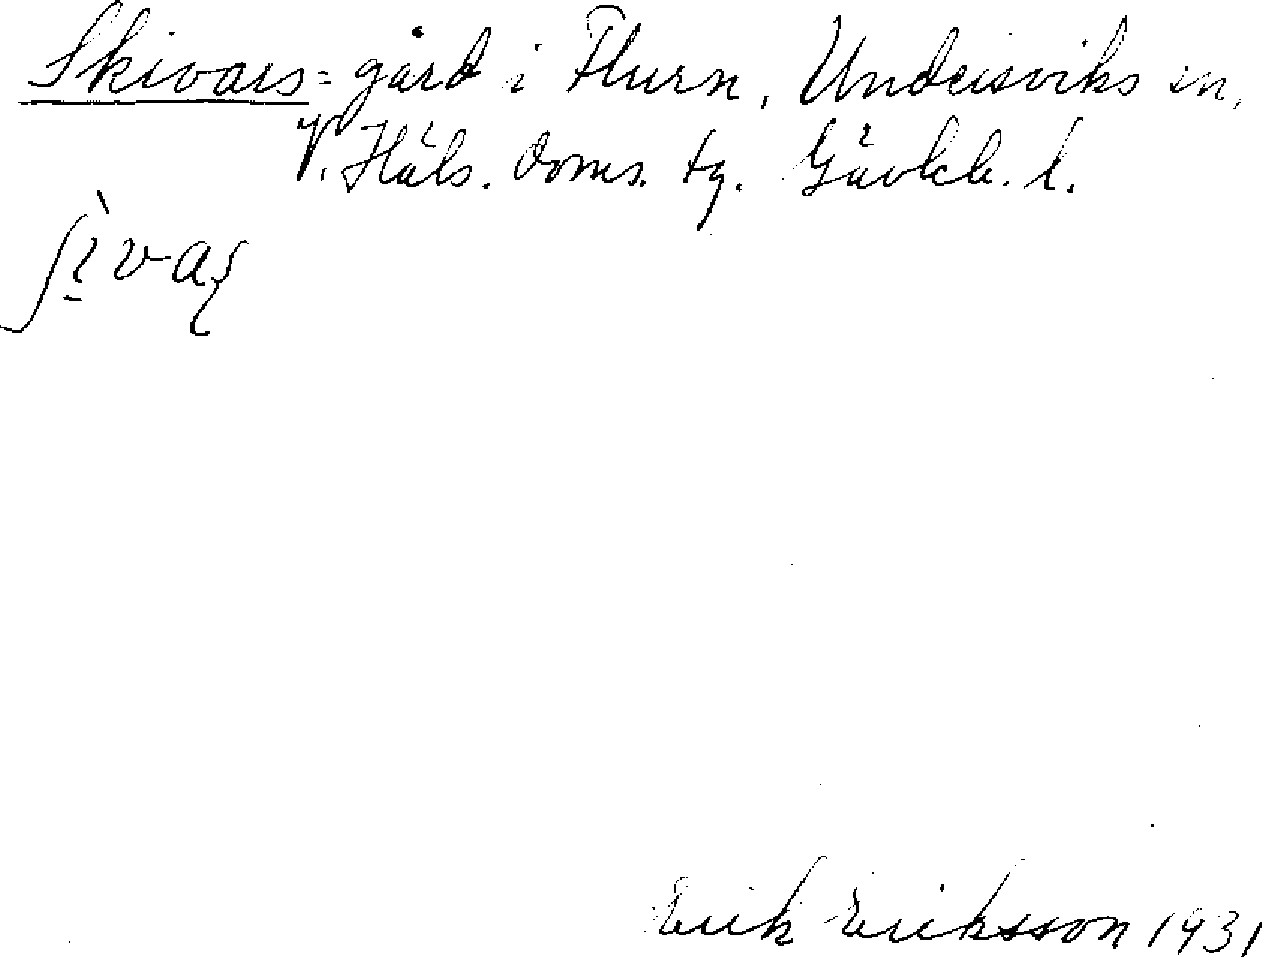 Skivars = gård i Flurn, Undersviks sn,
V. Häls. doms. tg. Gävleb. l.
ʃì̠vaʂ
Erik Eriksson 1931